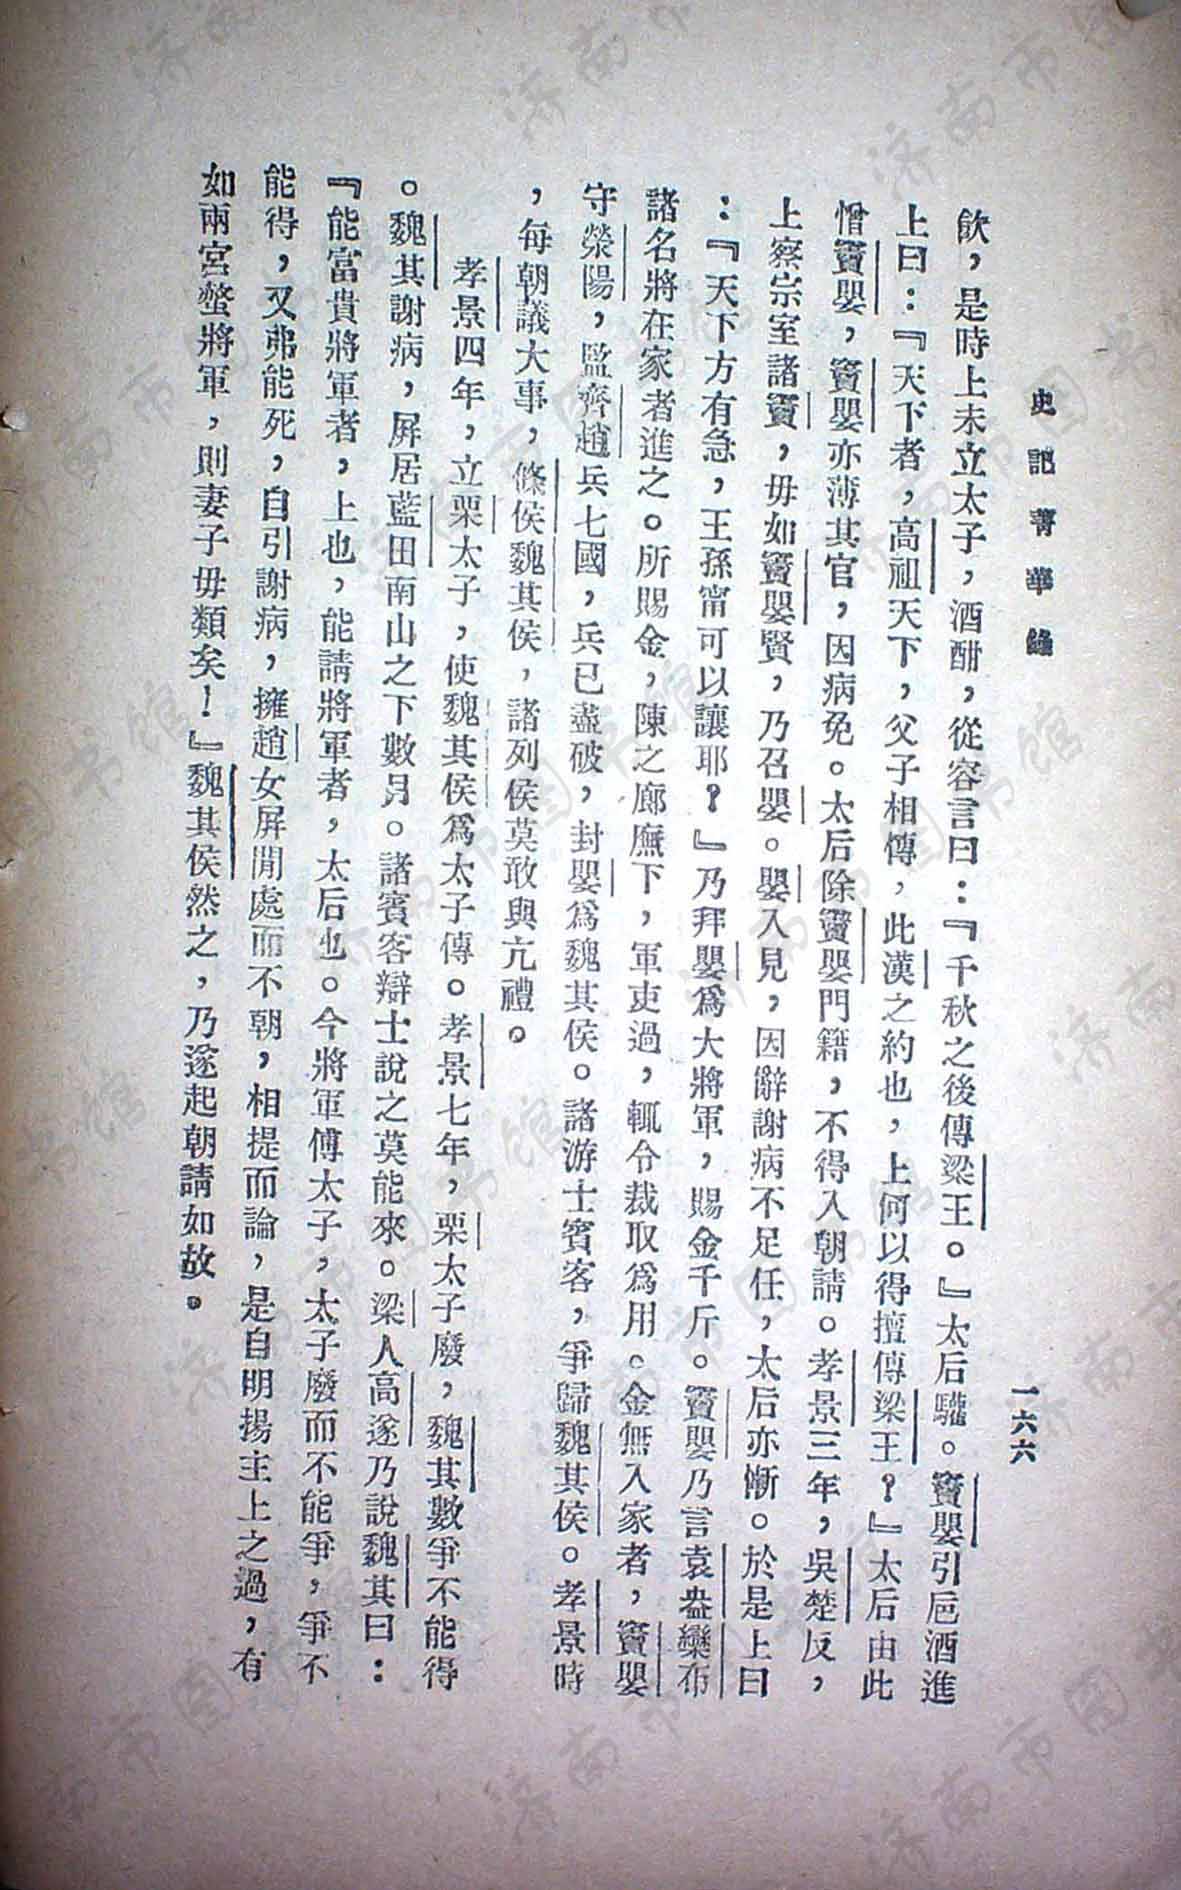 史記菁華錄
一六六
飲，是時上未立太子，酒酣，從容言曰：『千秋之後傳梁王。』太后驩。竇嬰引巵酒進
上曰：『天下者，高祖天下，父子相傳，此漢之約也，上何以得擅傳梁王？』太后由此
憎竇嬰，竇嬰亦薄其官，因病免。太后除竇嬰門籍，不得入朝請。孝景三年，吳楚反，
上察宗室諸竇，毋如竇嬰賢，乃召嬰。嬰入見，因辭謝病不足任，太后亦慚。於是上曰
：『天下方有急，王孫甯可以讓耶？』乃拜嬰爲大將軍，賜金千斤。竇嬰乃言袁盎欒布
諸名將在家者進之。所賜金，陳之廊廡下，軍吏過，輒令裁取爲用。金無入家者，竇嬰
守榮陽，監齊趙兵七國，兵已盡破，封嬰爲魏其侯。諸游士賓客，爭歸魏其侯。孝景時
，每朝議大事，條侯魏其侯，諸列侯莫敢與亢禮。
孝景四年，立栗太子，使魏其侯爲太子傅。孝景七年，栗太子廢，魏其數爭不能得
。魏其謝病，屏居藍田南山之下數月。諸賓客辯士說之莫能來。梁人高遂乃說魏其曰：
『能富貴將軍者，上也，能請將軍者，太后也。今將軍傅太子，太子廢而不能爭，爭不
能得，又弗能死，自引謝病，擁趙女屏閒處而不朝，相提而論，是自明揚主上之過，有
如兩宮螫將軍，則妻子毋類矣！』魏其侯然之，乃遂起朝請如故。
济南市图书馆